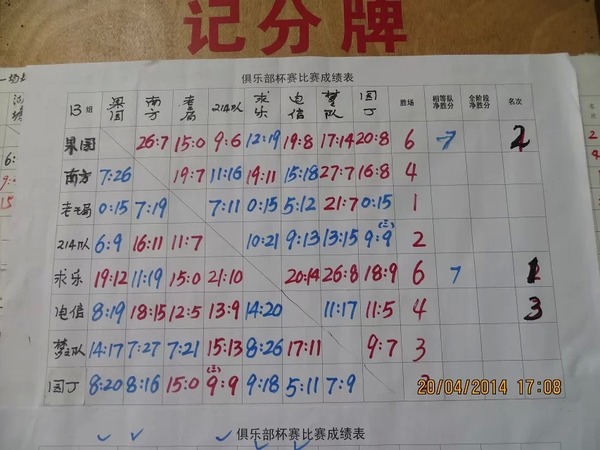 记分牌
俱乐部杯赛比赛成绩表
B组 果园 南方 老局 214队 求乐 电信 梦队 园丁 胜场 相等队净胜分 全阶段净胜分 名次
果园 26:7 15:0 9:6 12:19 19:8 17:14 20:8 6 -7 2
南方 7:26 19:7 11:16 19:11 15:18 27:7 16:8 4
0:15 7:19 7:11 0:15 5:12 21:7 0:15 1
214队 6:9 16:11 11:7 10:21 9:13 13:15 9:9 (三) 2
求乐 19:12 11:19 15:0 21:10 20:14 26:8 18:9 6 7 1
电信 8:19 18:15 12:5 13:9 14:20 11:17 11:5 4 3
梦之队 14:17 7:27 7:21 15:13 8:26 17:11 9:7 3
园丁 8:20 8:16 15:0 9:9 (三) 9:18 5:11 7:9
20/04/2014 17:08
俱乐部杯赛比赛成绩表